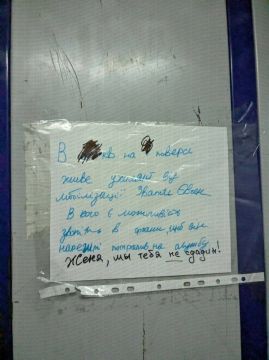 В кв на поверсі
живе ухилянт від
мобілізації Звати Євген
В кого є можливість
зробіть в щоб він
нарешті потрапив на службу
Женя, мы тебя не сдадим!